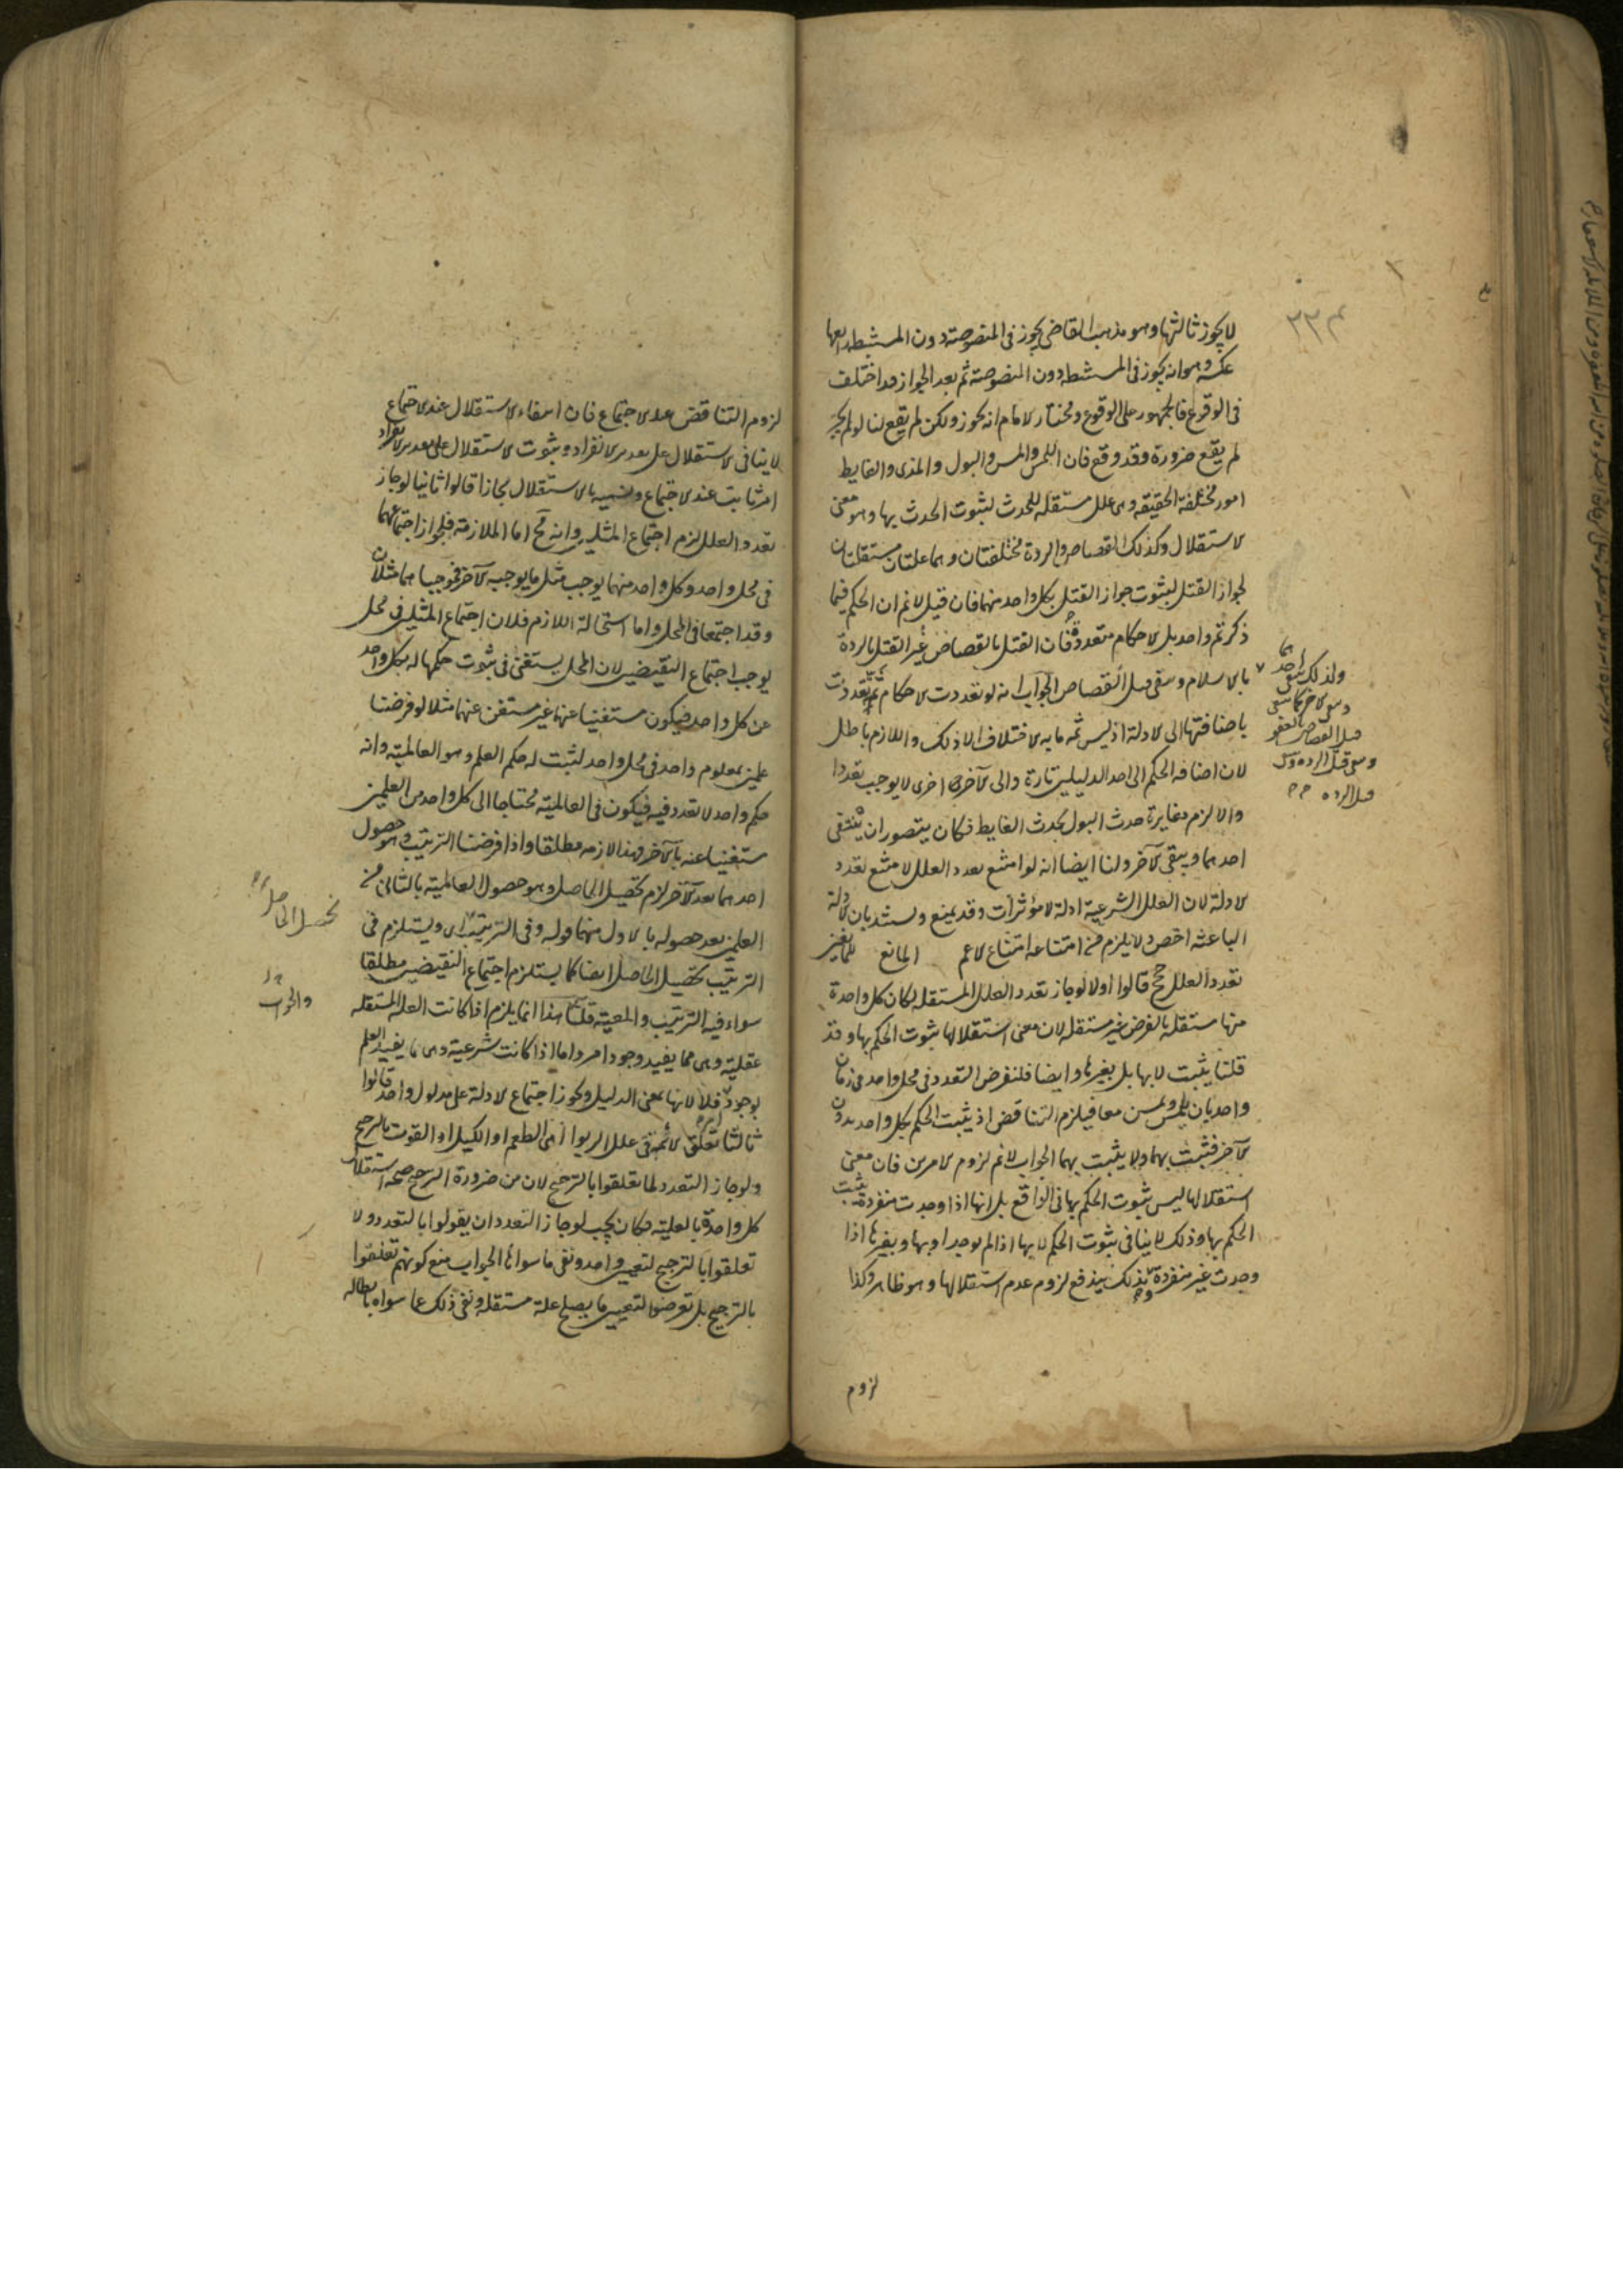 ٣٢٤
لا يجوز ثالثها وهو مذهب القاضي يجوز في المنصوصة دون المستنبطة رابعها
عكسه وهو انه يجوز في المستنبطة دون المنصوصة ثم بعد الجواز قد اختلف
في الوقوع فالجمهور على الوقوع ومختار الامام انه يجوز ولكن لم يقع لنا لو لم يجز
لم يقع ضرورة وقد وقع فان اللمس والمس والبول والمذي والغايط
امور مختلفة الحقيقة وهي علل مستقلة للحدث لثبوت الحدث بها وهو معنى
الاستقلال وكذلك القصاص والردة مختلفتان وهما علتان مستقلتان
لجواز القتل لثبوت جواز القتل بكل واحد منهما فان قيل لا نم ان الحكم فيما
ذكرتم واحد بل الاحكام متعددة فان القتل بالقصاص غير القتل بالردة
ولذلك ينتفي احدهما
ويبقى الآخر كما ينتفي
قتل القصاص بالعفو
ويبقى قتل الردة
قتل الردة
بالاسلام ويبقى قتل القصاص الجواب انه لو تعددت الاحكام ثمة لتعددت
باضافتها الى الادلة اذ ليس ثمه ما به الاختلاف الا ذلك واللازم باطل
لان اضافة الحكم الى احد الدليلين تارة والى الآخر اخرى لا يوجب تعددا
والا لزم مغايرة حدث البول لحدث الغايط فكان يتصور ان ينتفي
احدهما ويبقى الآخر ولنا ايضا انه لو امتنع تعدد العلل لامتنع تعدد
الادلة لان العلل الشرعية ادلة لا مؤثرات وقد يمنع ويسند بان الادلة
الباعثة اخص ولا يلزم من امتناعه امتناع الاعم المانع
تعدد العلل ح قالوا اولا لو جاز تعدد العلل المستقلة لكان كل واحدة
منها مستقلة بالفرض غير مستقلة لان معنى استقلالها ثبوت الحكم بها وقد
قلنا يثبت لا بها بل بغيرها وايضا فلنفرض التعدد في محل واحد في زمان
واحد بان يلمس ويمس معا فيلزم التناقض اذ يثبت الحكم بكل واحد بدون
الآخر فيثبت بهما ولا يثبت بهما الجواب لا نم لزوم الامرين فان معنى
استقلالها ليس ثبوت الحكم بها في الواقع بل انها اذا وجدت منفردة يثبت
الحكم بها وذلك لا ينافي ثبوت الحكم لا بها اذا لم يوجد او بها وبغيرها اذا
وجدت غير منفردة وبذلك يندفع لزوم عدم استقلالها وهو ظاهر وكذا
لزوم
لزوم التناقض عند الاجتماع فان انتفاء الاستقلال عند الاجتماع
لا ينافي الاستقلال على تقدير الانفراد وثبوت الاستقلال على تقدير الانفراد
امر ثابت عند الاجتماع وتسميته بالاستقلال مجازا قالوا ثانيا لو جاز
تعدد العلل لزم اجتماع المثلين وانه مح اما الملازمة فلجواز اجتماعهما
في محل واحد وكل واحد منهما يوجب مثل ما يوجبه الآخر فموجباهما مثلان
وقد اجتمعا في المحل واما استحالة اللازم فلان اجتماع المثلين في محل
يوجب اجتماع النقيضين لان المحل يستغني في ثبوت حكمها له بكل واحد
عن كل واحد فيكون مستغنيا عنها غير مستغن عنها مثلا لو فرضنا
علمين بمعلوم واحد في محل واحد لثبت له حكم العلم وهو العالمية وانه
حكم واحد لا تعدد فيه فيكون في العالمية محتاجا الى كل واحد من العلمين
مستغنيا عنه بالآخر وهذا لازمه مطلقا واذا فرضنا الترتيب وهو حصول
احدهما بعد الآخر لزم تحصيل الحاصل وهو حصول العالمية بالثاني من
العلمين بعد حصوله بالاول منهما قوله وفي الترتيب اي ويستلزم في
تحصيل الحاصل
الترتيب تحصيل الحاصل ايضا كما يستلزم اجتماع النقيضين مطلقا
سواء فيه الترتيب والمعية قلنا هذا انما يلزم اذا كانت العلل المستقلة
والجواب
عقلية وهي مما يفيد وجود امر واما اذا كانت شرعية وهي ما يفيد العلم
بوجوده فلا لانها بمعنى الدليل ويجوز اجتماع الادلة على مدلول واحد قالوا
ثالثا تعلق الائمة في علل الربوا اهي الطعم او الكيل او القوت بالترجيح
ولو جاز التعدد لما تعلقوا بالترجيح لان من ضرورة الترجيح صحة استقلال
كل واحدة بالعلية فكان يجب لو جاز التعدد ان يقولوا بالتعدد ولا
تعلقوا بالترجيح لتعيين واحد ونفي ما سواها الجواب منع كونهم تعلقوا
بالترجيح بل تعرضوا لتعيين ما يصلح علة مستقلة ونفي ذلك عما سواه بابطاله